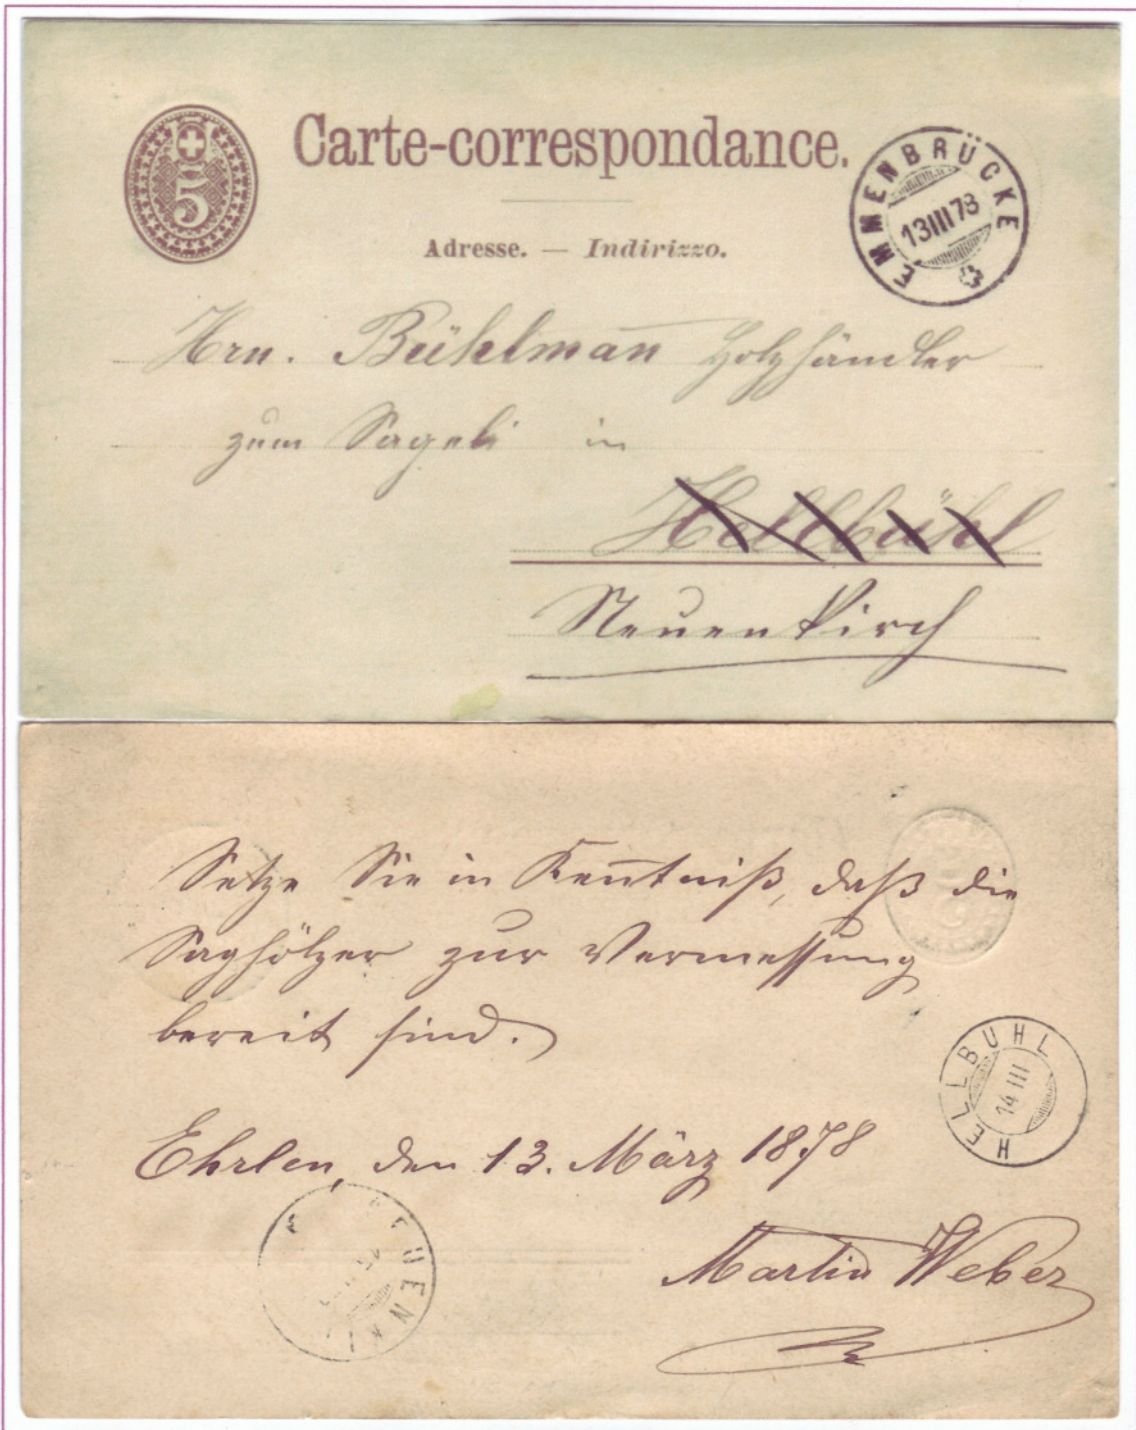 5
Carte-correspondance.
EMMENBRÜCKE
13 III 78
Adresse. — Indirizzo.
Hrn. Bühlman̄ Holzhändler
zum Sageli in
Hellbühl
Neuenkirch
Setze Sie in Ken̄tniß, daß die
Saghölzer zur Vermessung
bereit sind.
HELLBÜHL
14 III
Ehrlen, den 13. März 1878
Martin Weber